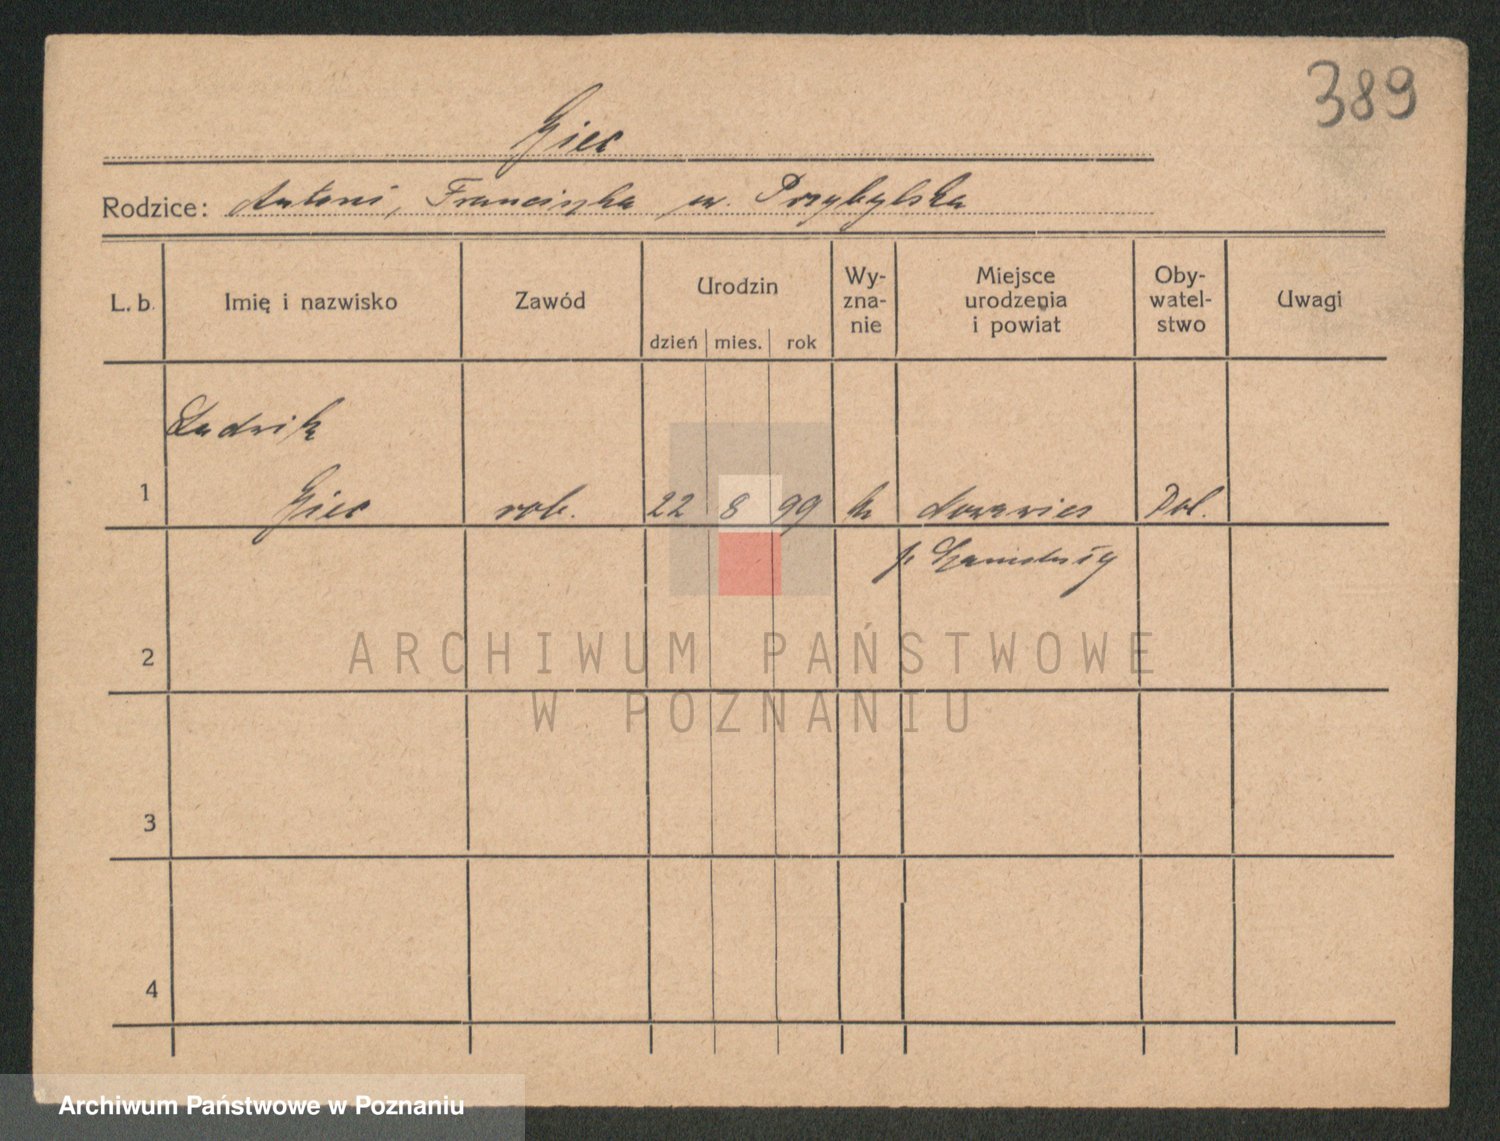 389
Giec
Rodzice: Antoni, Franciszka ur. Przybylska
L. b. Imię i nazwisko Zawód Urodzin dzień mies. rok Wy- zna- nie Miejsce urodzenia i powiat Oby- watel- stwo Uwagi
Ludwik
1 Giec rob. 22 8 99 k Nowawieś Pol.
p. Szamotuły
2
ARCHIWUM PAŃSTWOWE
W POZNANIU
3
4
Archiwum Państwowe w Poznaniu